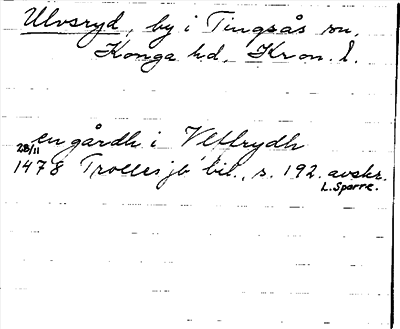 Ulvsryd, by i Tingsås sn,
Konga hd, Kron. l.
en gårdh i Vlffrydh
28/11
1478 Trolles jb bil., s. 192. avskr.
L. Sparre.